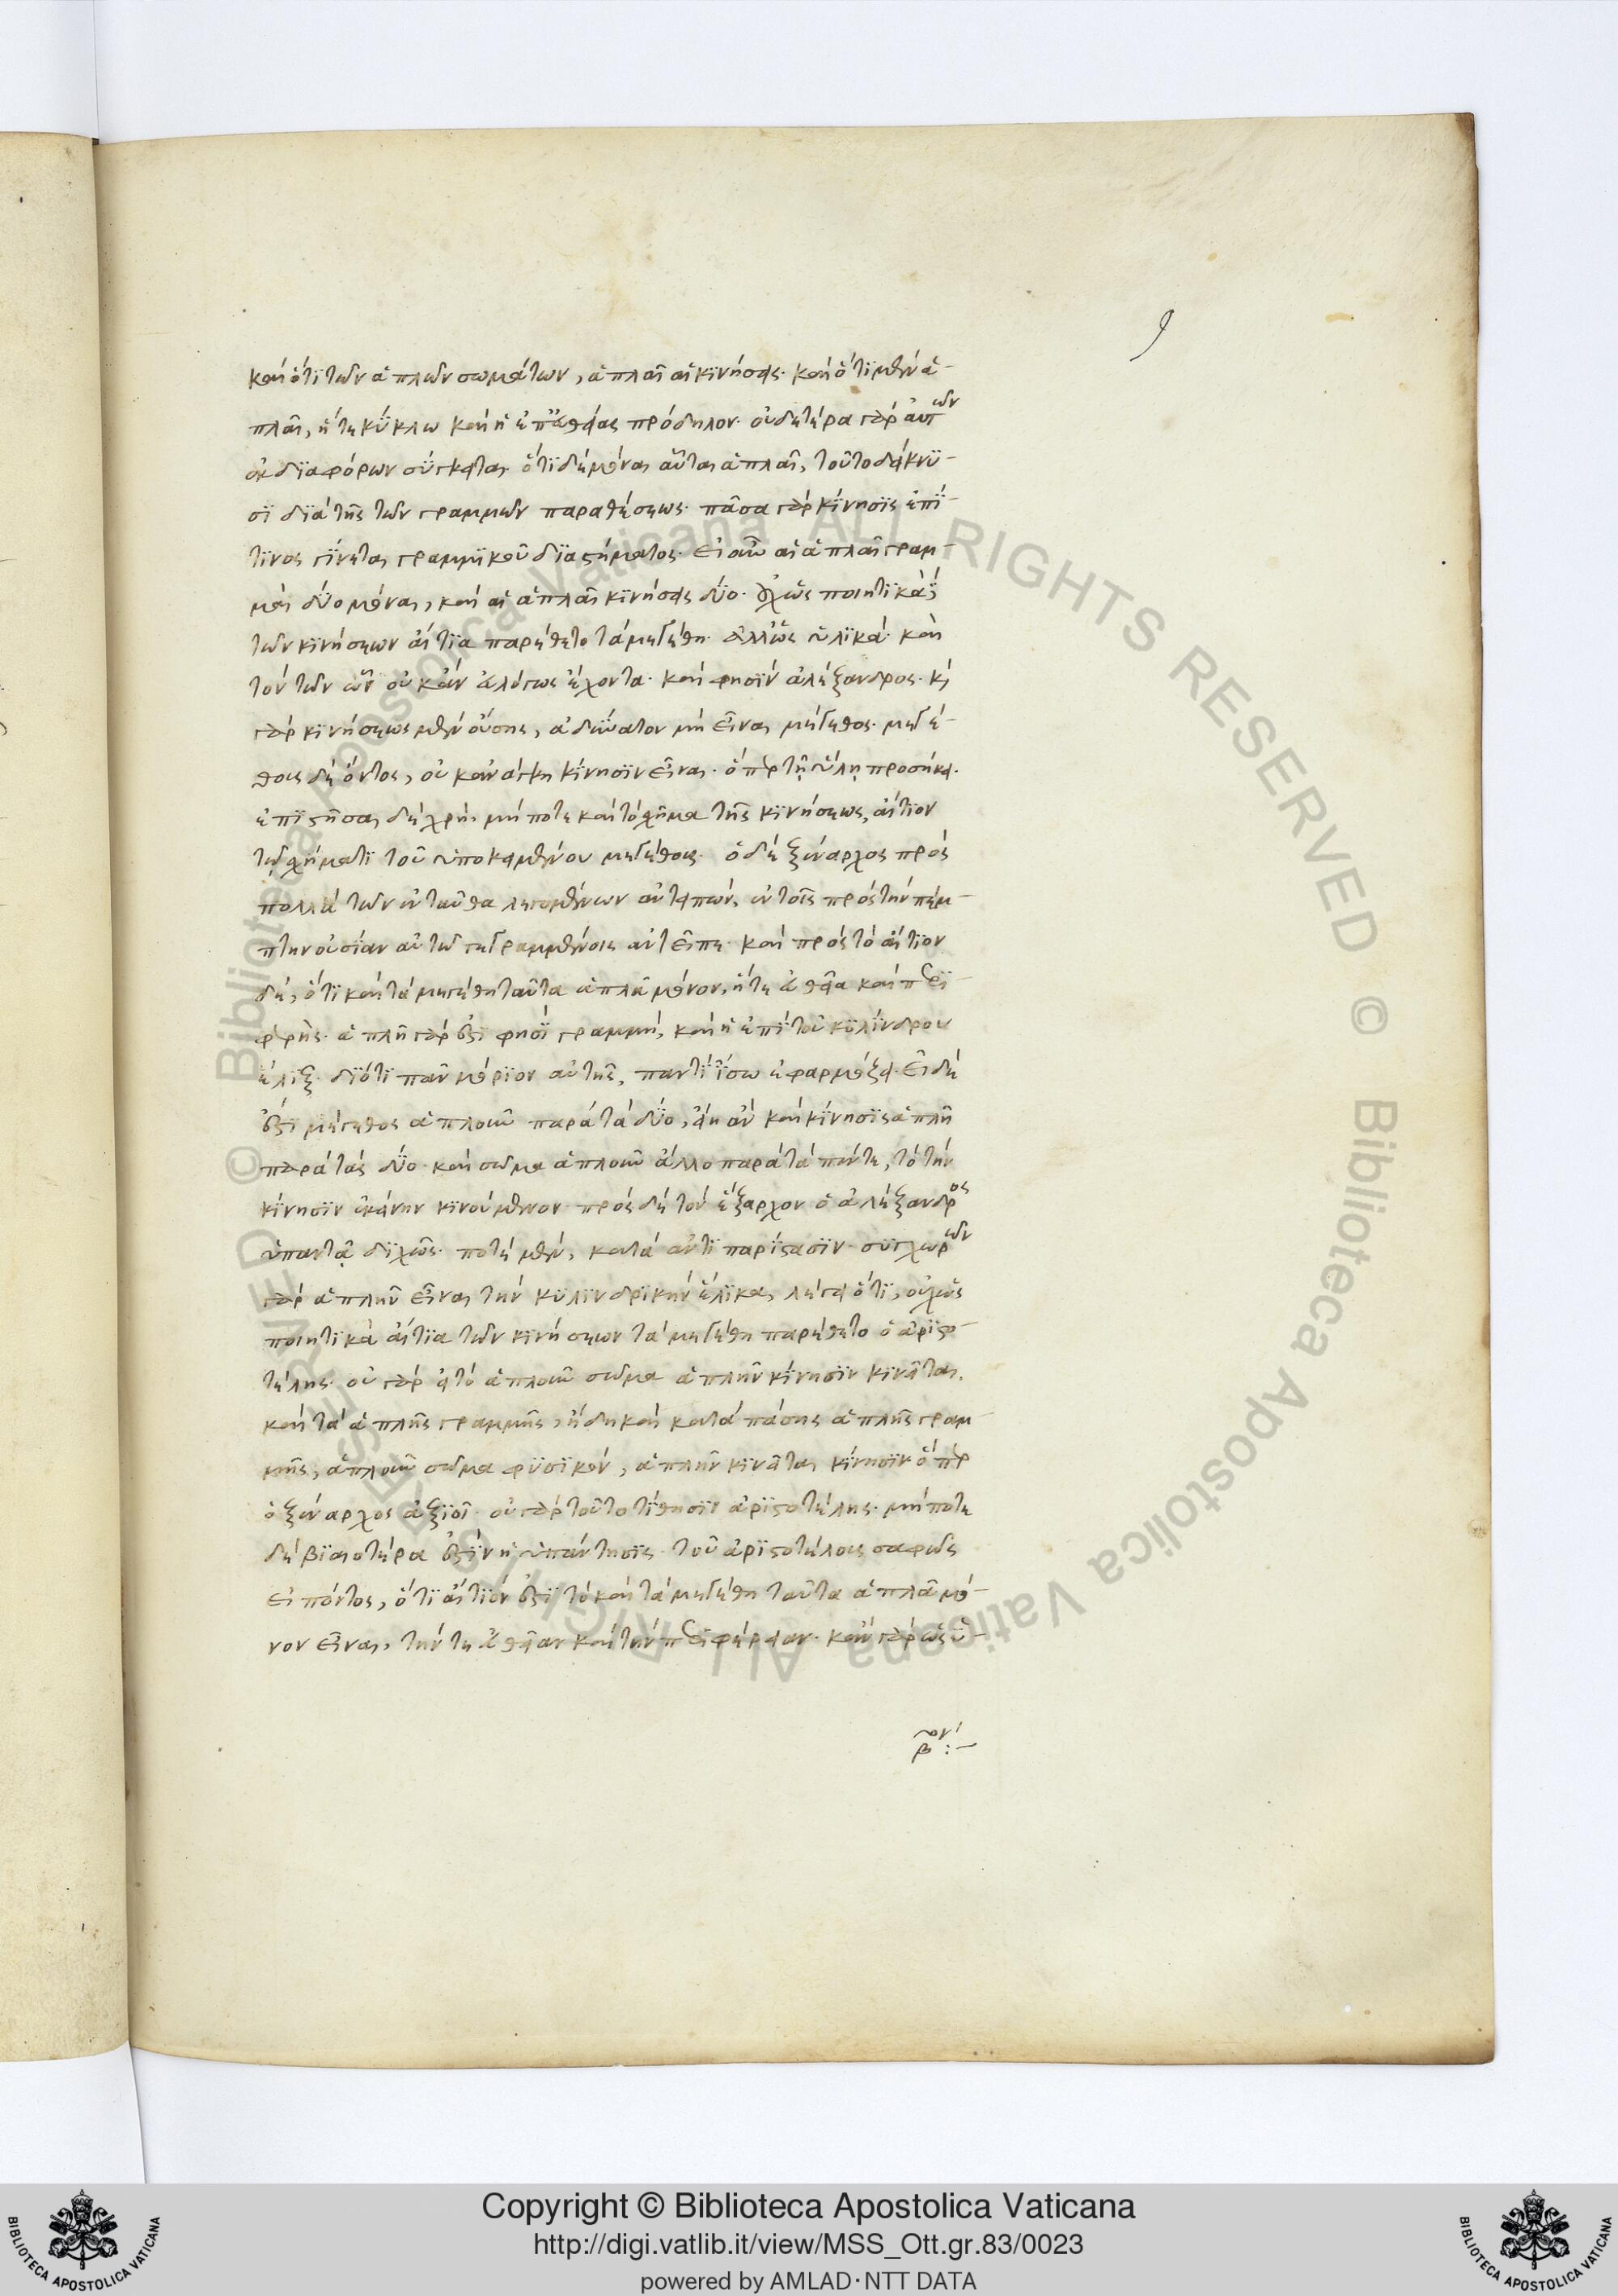 9
καὶ ὅτι τῶν ἁπλῶν σωμάτων, ἁπλαῖ αἱ κϊνήσεις· καὶ ὅτι μὲν ἁ-
πλαῖ, ἥ τε κύκλω καὶ ἡ ἐπ' εὐθείας πρόδηλον· οὐδετέρα γὰρ αὐτῶν
ἐκ δϊαφόρων σύγκειται· ὅτι δὲ μόναι αὗται ἁπλαῖ, τοῦτο δείκνυ-
σϊ δϊὰ τῆς τῶν γραμμῶν παραθέσεως· πᾶσα γὰρ κίνησϊς ἐπί-
τϊνος γίνεται γραμμϊκοῦ δϊαστήματος· εἰ οὖν αἱ ἁπλαῖ γραμ-
μαὶ δύο μόναι, καὶ αἱ ἁπλαῖ κϊνήσεις δύο· οὐχ ὡς ποιητϊκὰ
τῶν κϊνήσεων αἴτϊα παρέθετο τὰ μεγέθη· ἀλλ' ὡς ὑλϊκά· καὶ
τὸν τῶν ὧν οὐκ ἂν ἀλόγως ἔχοντα· καὶ φησϊν ἀλέξανδρος· κὶ
γὰρ κϊνήσεως μὲν οὔσης, ἀδύνατον μὴ εἶναι μέγεθος· μεγέ-
θους δὲ ὄντος, οὐκ ἀνάγκη κίνησϊν εἶναι· ὅπερ τῇ ὕλῃ προσήκει·
ἐπϊστῆσαι δὲ χρὴ, μή ποτε καὶ τὸ σχῆμα τῆς κϊνήσεως, αἴτϊον
τῶ σχήματϊ τοῦ ὑποκειμένου μεγέθους· ὁ δὲ ξέναρχος πρὸς
πολλὰ τῶν ἐνταῦθα λεγομένων ἀντειπὼν, ἐν τοῖς πρὸς τὴν πέμ-
πτην οὐσίαν αὐτῶ γεγραμμένοις ἀντεῖπε· καὶ πρὸς τὸ αἴτϊον
δὲ, ὅτι καὶ τὰ μεγέθη ταῦτα ἁπλᾶ μόνον, ἥ τε εὐθεῖα καὶ περϊ-
φερής· ἁπλῆ γὰρ ἐστί φησϊ γραμμὴ, καὶ ἡ ἐπὶ τοῦ κϋλίνδρου
ἕλιξ· δϊότι πᾶν μόρϊον αὐτῆς, παντὶ ἴσω ἐφαρμόζει· εἰ δὲ
ἐστὶ μέγεθος ἁπλοῦν παρὰ τὰ δύο, εἴη ἂν καὶ κίνησϊς ἁπλῆ
παρὰ τὰς δύο· καὶ σῶμα ἁπλοῦν ἄλλο παρὰ τὰ πέντε, τὸ τὴν
κίνησϊν ἐκείνην κϊνούμενον· πρὸς δὲ τὸν ἔξαρχον ὁ ἀλέξανδρος
ὑπαντᾷ δϊχῶς· ποτὲ μὲν, κατὰ ἀντϊπαρίστασϊν· συγχωρῶν
γὰρ ἁπλῆν εἶναι τὴν κυλϊνδρϊκὴν ἕλϊκα, λέγει ὅτι, οὐχ ὡς
ποιητϊκὰ αἴτϊα τῶν κϊνήσεων τὰ μεγέθη παρέθετο ὁ ἀρϊστο-
τέλης· οὐ γὰρ εἰ τὸ ἁπλοῦν σῶμα ἁπλῆν κίνησϊν κϊνεῖται,
κατὰ ἁπλῆς γραμμῆς, ἤδη καὶ κατὰ πάσης ἁπλῆς γραμ-
μῆς, ἁπλοῦν σῶμα φυσϊκὸν, ἁπλῆν κϊνεῖται κίνησϊν ὅπερ
ὁ ξέναρχος ἀξϊοῖ· οὐ γὰρ τοῦτο τίθησϊν ἀρϊστοτέλης· μή ποτε
δὲ βϊαιοτέρα ἐστὶν ἡ ὑπάντησϊς· τοῦ ἀρϊστοτέλους σαφῶς
εἰπόντος, ὅτι αἴτϊόν ἐστϊ τὸ καὶ τὰ μεγέθη ταῦτα ἁπλᾶ μό-
νον εἶναι, τήν τε εὐθεῖαν καὶ τὴν περϊφέρειαν· κἂν γὰρ ὡς ὑ-
β ον :-
Copyright © Biblioteca Apostolica Vaticana
http://digi.vatlib.it/view/MSS_Ott.gr.83/0023
powered by AMLAD·NTT DATA